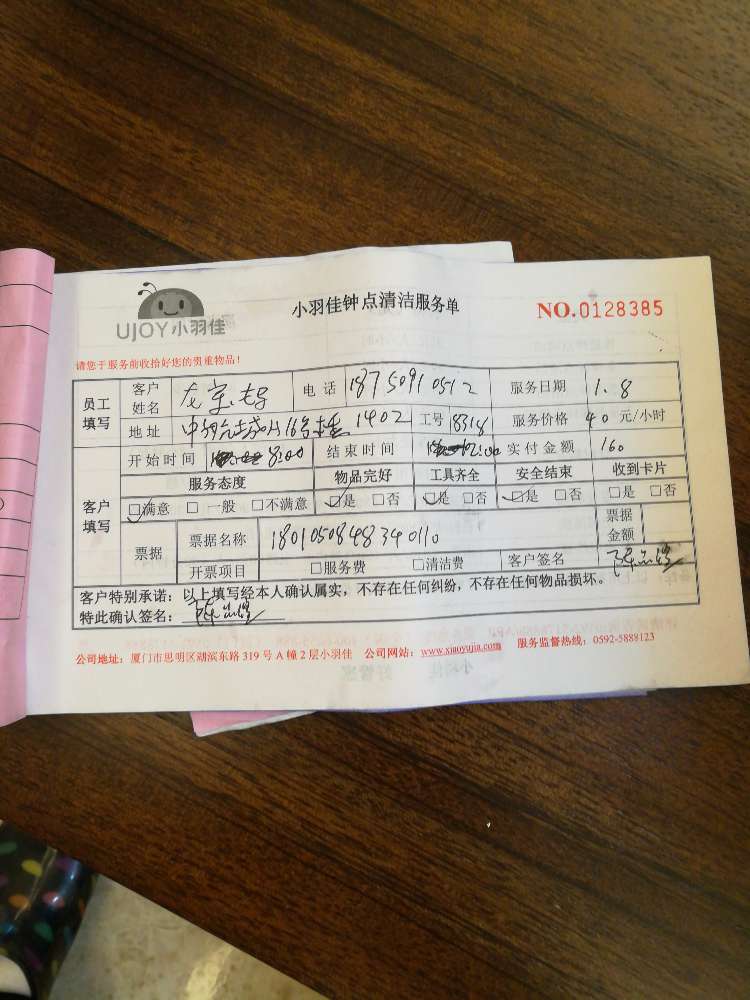 UJOY小羽佳
小羽佳钟点清洁服务单
NO.0128385
请您于服务前收拾好您的贵重物品!
员工填写 客户姓名 电话 18750910512 服务日期 1.8
地址 16号楼 1402 工号 8318 服务价格 40 元/小时
开始时间 8:00 结束时间 12:00 实付金额 160
客户填写 服务态度 物品完好 工具齐全 安全结束 收到卡片
☑满意 □一般 □不满意 ☑是 □否 ☑是 □否 ☑是 □否 □是 □否
票据 票据名称 1801050848340110 票据金额
开票项目 □服务费 □清洁费 客户签名
客户特别承诺：以上填写经本人确认属实，不存在任何纠纷，不存在任何物品损坏。
特此确认签名：
公司地址：厦门市思明区湖滨东路 319 号 A 幢 2 层小羽佳 公司网站：www.xiaoyujia.com 服务监督热线：0592-5888123